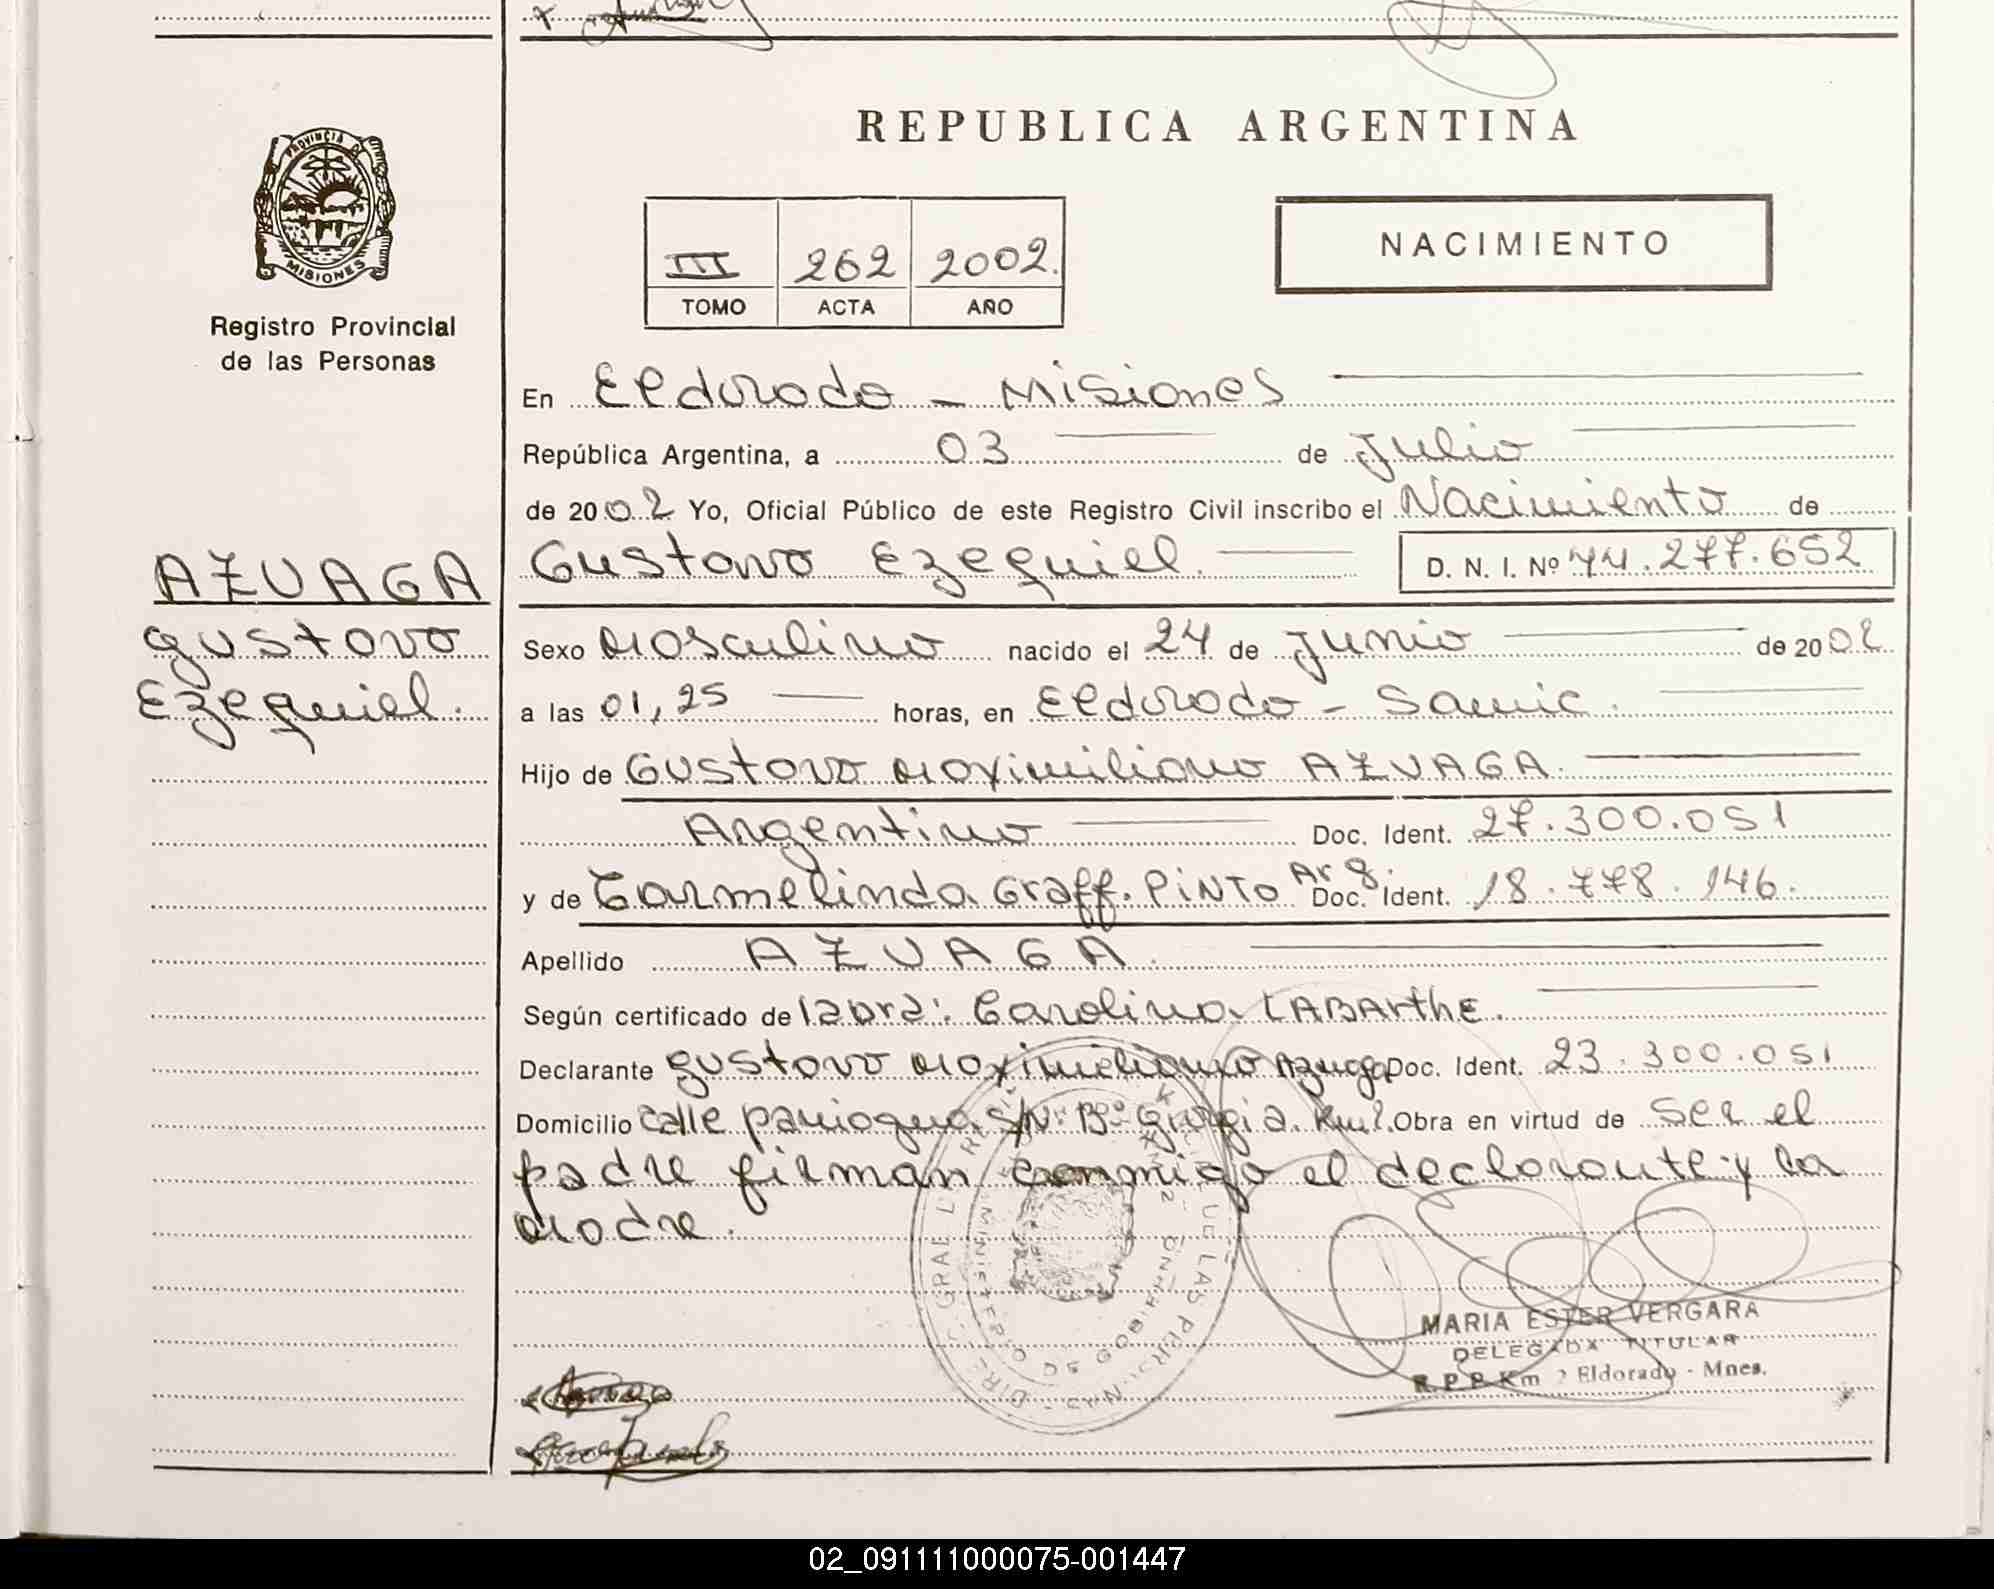 PROVINCIA DE
MISIONES
Registro Provincial
de las Personas
REPUBLICA ARGENTINA
III 262 2002.
TOMO ACTA AÑO
NACIMIENTO
En Eldorado - Misiones
República Argentina, a 03 de Julio
de 2002 Yo, Oficial Público de este Registro Civil inscribo el Nacimiento de
AZUAGA
Gustavo
Ezequiel.
Gustavo Ezequiel. D. N. I. Nº 44.277.652
Sexo Masculino nacido el 24 de Junio de 2002
a las 01,25 horas, en Eldorado - Samic.
Hijo de Gustavo Maximiliano AZUAGA.
Argentino Doc. Ident. 27.300.051
y de Carmelinda Graff. PiNTO Arg. Doc. Ident. 18.778.146.
Apellido AZUAGA.
Según certificado de la Dra: Carolina LABArthE.
Declarante Gustavo Maximiliano Azuaga Doc. Ident. 23.300.051
Domicilio calle S/Nº Bº Giorgia. Km 2. Obra en virtud de ser el
padre firman conmigo el declarante y la
Madre.
MARIA ESTER VERGARA
DELEGADA TITULAR
R.P.P. Km 2 Eldorado - Mnes.
02_091111000075-001447